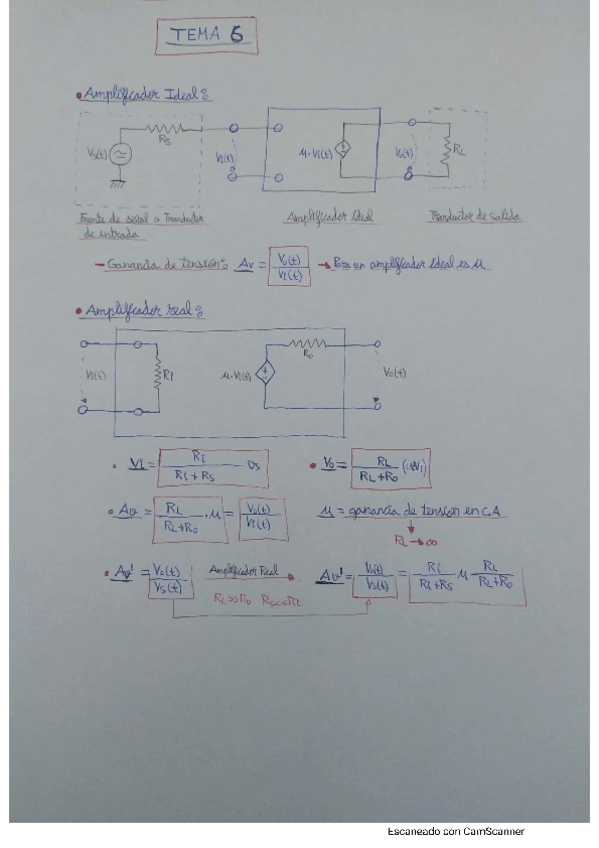 TEMA 6
• Amplificador Ideal:
Vs(t) Rs Vi(t) μ·Vi(t) Vo(t) RL
Fuente de señal o Transductor de entrada
Amplificador Ideal
Transductor de salida
- Ganancia de tensión: Av = Vo(t)/Vi(t) → Para un amplificador Ideal es μ
• Amplificador real:
Vi(t) Ri μ·Vi(t) Ro Vo(t)
• Vi = Ri/(Ri+Rs) Vs
• Vo = RL/(RL+Ro) (μVi)
• Av = RL/(RL+Ro) · μ = Vo(t)/Vi(t)
μ = ganancia de tensión en C.A
RL → ∞
• Av' = Vo(t)/Vs(t)
Amplificador Real
RL>>Ro Rs<<Ri
Av' = Vo(t)/Vs(t) = Ri/(Ri+Rs) μ RL/(RL+Ro)
Escaneado con CamScanner